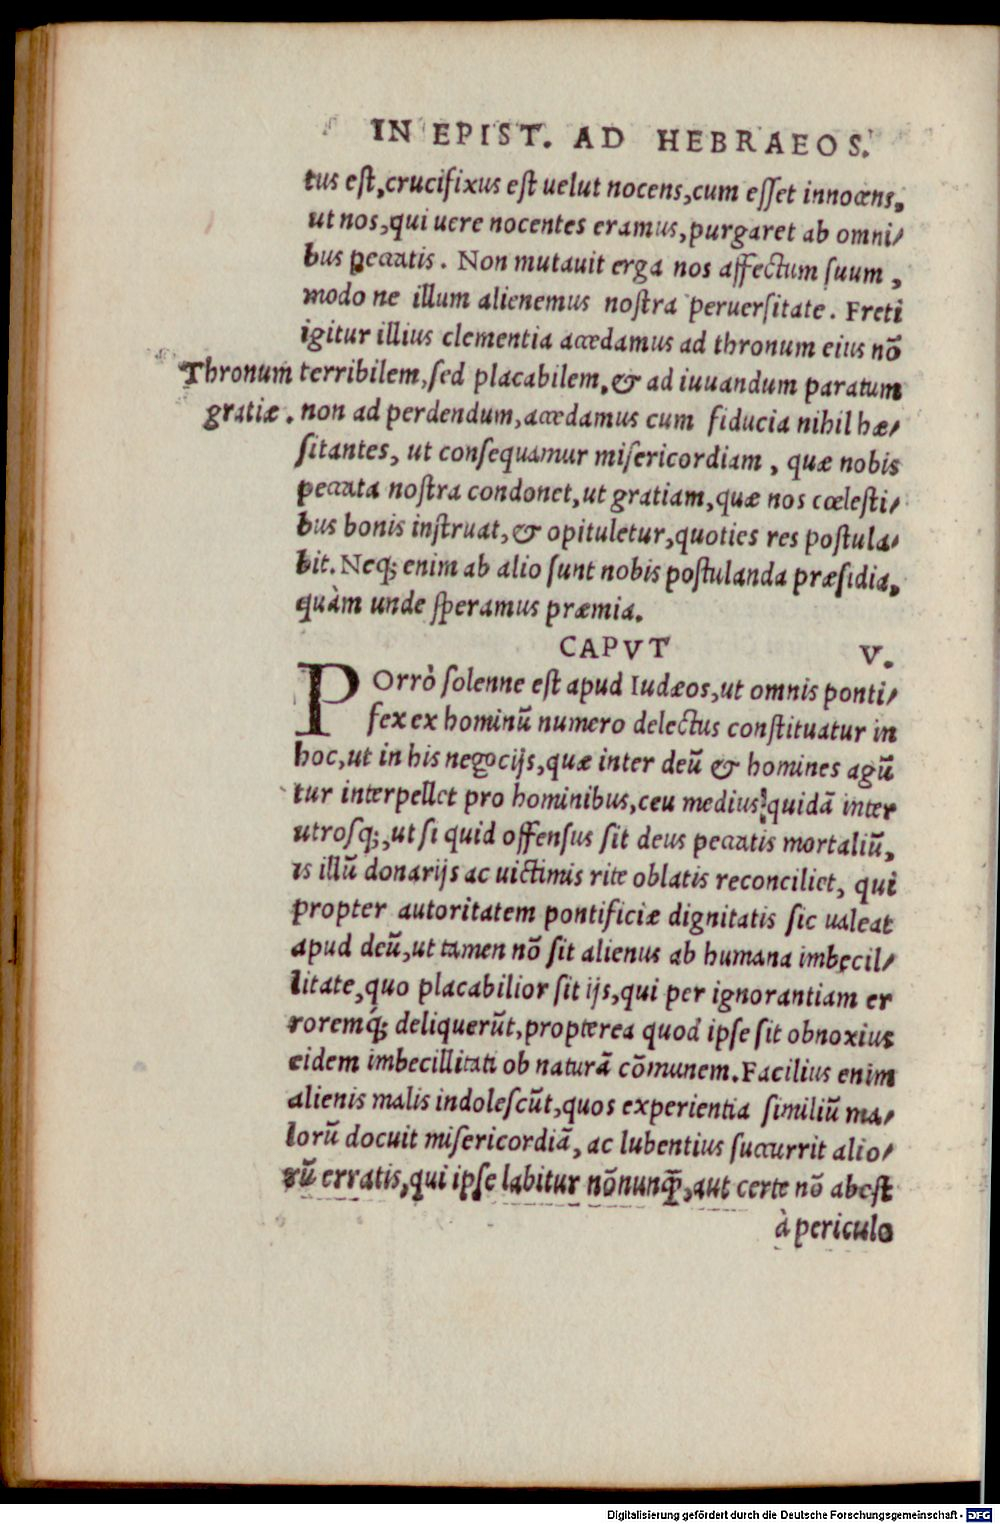 IN EPIST. AD HEBRAEOS.
tus est, crucifixus est uelut nocens, cum esset innocens,
ut nos, qui uere nocentes eramus, purgaret ab omni/
bus peccatis. Non mutauit erga nos affectum suum,
modo ne illum alienemus nostra peruersitate. Freti
igitur illius clementia accedamus ad thronum eius nō
Thronum
gratiæ.
terribilem, sed placabilem, & ad iuuandum paratum
non ad perdendum, accedamus cum fiducia nihil hæ/
sitantes, ut consequamur misericordiam, quæ nobis
peccata nostra condonet, ut gratiam, quæ nos cœlesti/
bus bonis instruat, & opituletur, quoties res postula/
bit. Neq; enim ab alio sunt nobis postulanda præsidia,
quàm unde speramus præmia.
CAPVT V.
POrrò solenne est apud Iudæos, ut omnis ponti/
fex ex hominū numero delectus constituatur in
hoc, ut in his negocijs, quæ inter deū & homines agū
tur interpellet pro hominibus, ceu medius quidā inter
utrosq;, ut si quid offensus sit deus peccatis mortaliū,
is illū donarijs ac uictimis rite oblatis reconciliet, qui
propter autoritatem pontificiæ dignitatis sic ualeat
apud deū, ut tamen nō sit alienus ab humana imbecil/
litate, quo placabilior sit ijs, qui per ignorantiam er
roremq́; deliquerūt, propterea quod ipse sit obnoxius
eidem imbecillitati ob naturā cōmunem. Facilius enim
alienis malis indolescūt, quos experientia similiū ma/
lorū docuit misericordiā, ac lubentius succurrit alio/
rū erratis, qui ipse labitur nōnunq̄, aut certe nō abest
à periculo
Digitalisierung gefördert durch die Deutsche Forschungsgemeinschaft - DFG